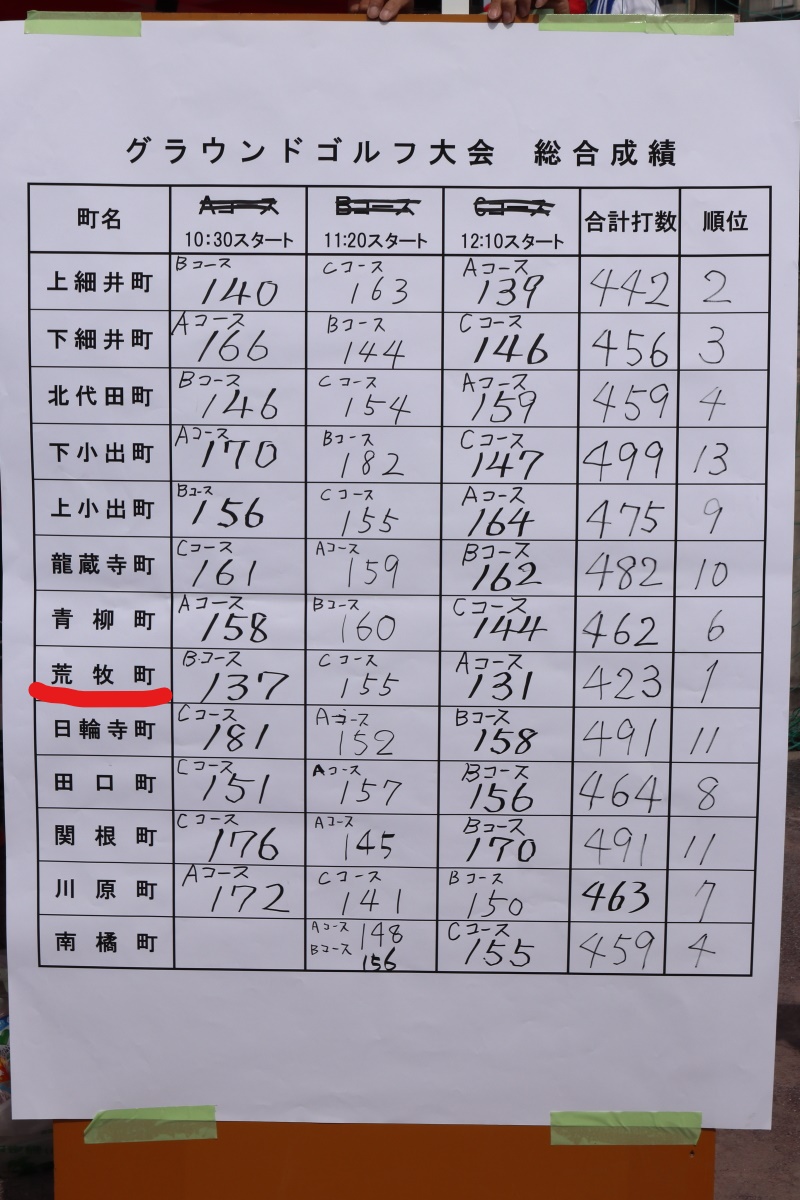 グラウンドゴルフ大会 総合成績
町名 Aコース Bコース Cコース 合計打数 順位
10:30スタート 11:20スタート 12:10スタート
上細井町 Bコース 140 Cコース 163 Aコース 139 442 2
下細井町 Aコース 166 Bコース 144 Cコース 146 456 3
北代田町 Bコース 146 Cコース 154 Aコース 159 459 4
下小出町 Aコース 170 Bコース 182 Cコース 147 499 13
上小出町 Bコース 156 Cコース 155 Aコース 164 475 9
龍蔵寺町 Cコース 161 Aコース 159 Bコース 162 482 10
青柳町 Aコース 158 Bコース 160 Cコース 144 462 6
荒牧町 Bコース 137 Cコース 155 Aコース 131 423 1
日輪寺町 Cコース 181 Aコース 152 Bコース 158 491 11
田口町 Cコース 151 Aコース 157 Bコース 156 464 8
関根町 Cコース 176 Aコース 145 Bコース 170 491 11
川原町 Aコース 172 Cコース 141 Bコース 150 463 7
南橘町 Aコース 148 Bコース 156 Cコース 155 459 4